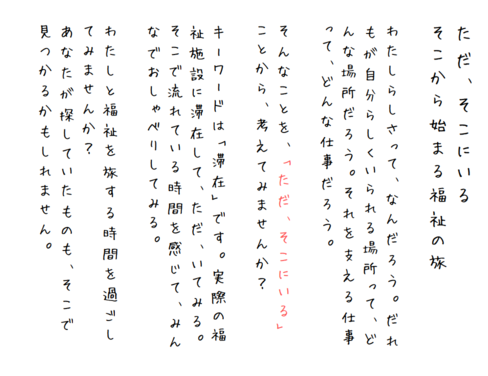 ただ、そこにいる
そこから始まる福祉の旅
わたしらしさって、なんだろう。だれ
もが自分らしくいられる場所って、ど
んな場所だろう。それを支える仕事
って、どんな仕事だろう。
そんなことを、「ただ、そこにいる」
ことから、考えてみませんか?
キーワードは「滞在」です。実際の福
祉施設に滞在して、ただ、いてみる。
そこで流れている時間を感じて、みん
なでおしゃべりしてみる。
わたしと福祉を旅する時間を過ごし
てみませんか?
あなたが探していたものも、そこで
見つかるかもしれません。